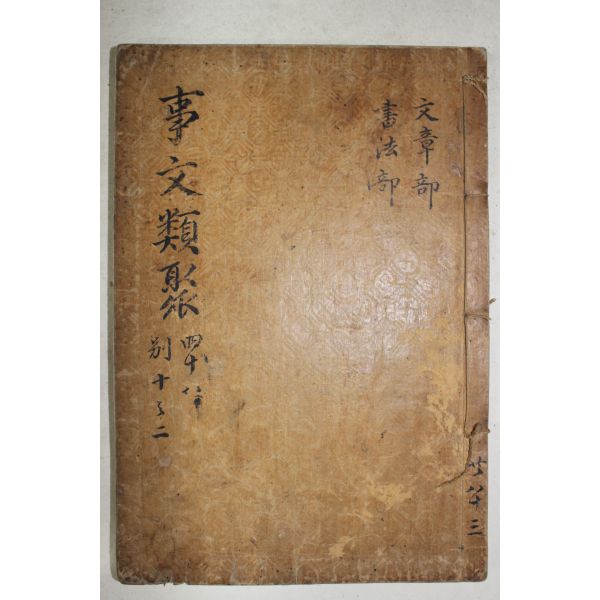 文章部
書法部
事文類聚
別十之二
共八十三